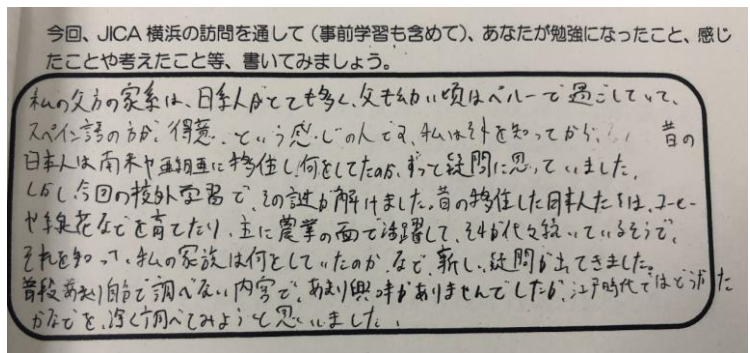 今回、JICA 横浜の訪問を通して（事前学習も含めて）、あなたが勉強になったこと、感じ
たことや考えたこと等、書いてみましょう。
私の父方の家系は、日系人がとても多く、父も幼い頃はペルーで過ごしていて、
スペイン語の方が得意、という感じの人です。私はそれを知ってから、昔の
日本人は南米や に移住し何をしてたのか、ずっと疑問に思っていました。
しかし今回の校外学習で、その謎が解けました。昔の移住した日本人たちは、コーヒー
や綿花などを育てたり、主に農業の面で活躍して、それが代々続いているそうで、
それを知って、私の家族は何をしていたのか、など、新しい疑問が出てきました。
普段あまり自分で調べない内容で、あまり興味がありませんでしたが、江戸時代ではどうだった
かなどを、深く調べてみようと思いました。